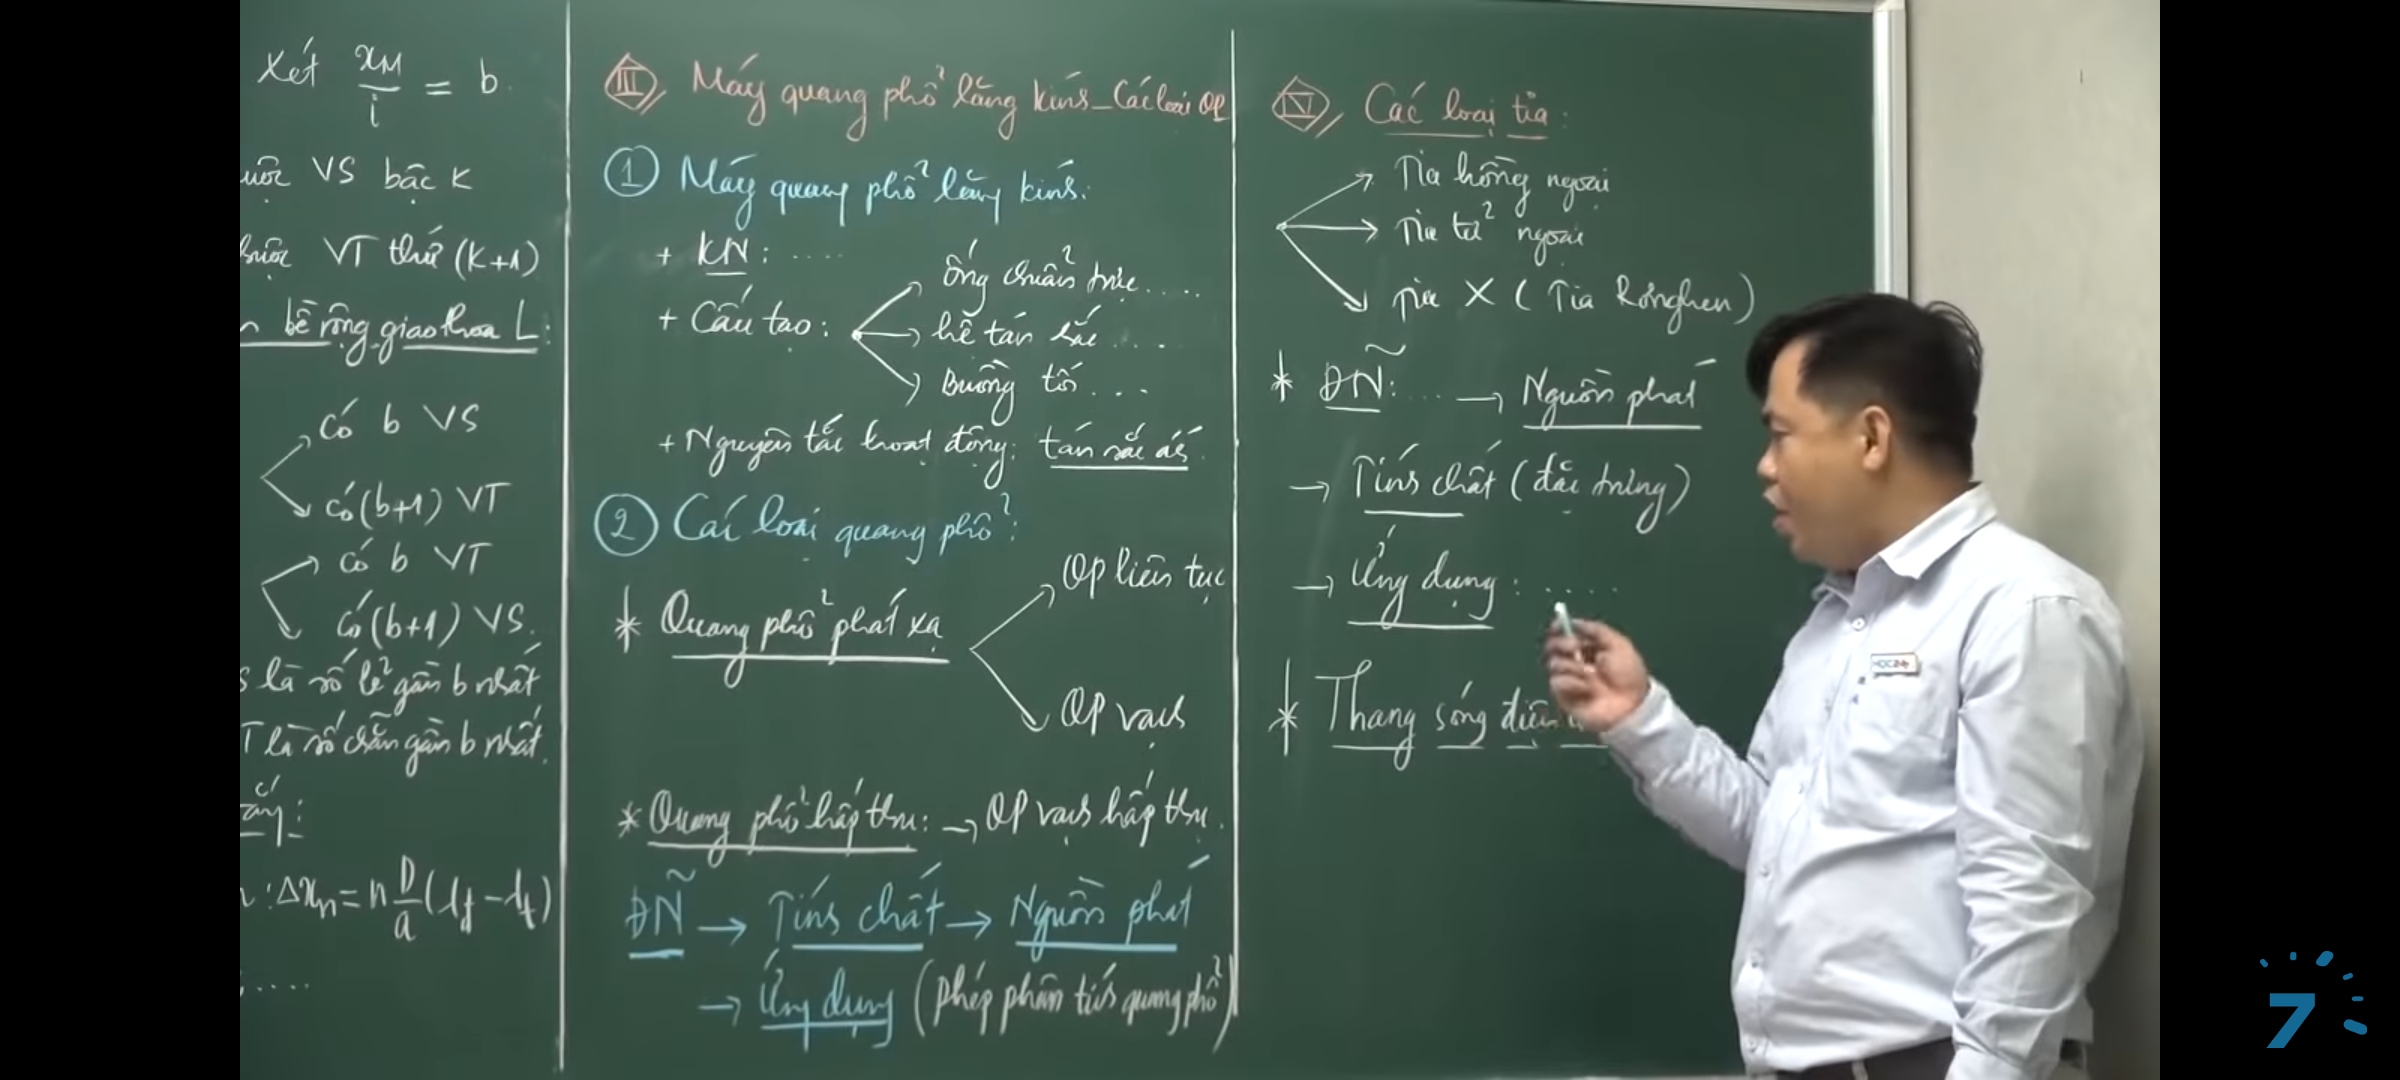 Xét xM/i = b.
VS bậc K
VT thứ (K+1)
bề rộng giao thoa L:
Có b VS
có (b+1) VT
có b VT
có (b+1) VS.
là số lẻ gần b nhất
T là số chẵn gần b nhất.
: Δxn = n D/a (λđ - λt)
.....
III Máy quang phổ lăng kính - Các loại QP
1 Máy quang phổ lăng kính:
+ KN: ....
+ Cấu tạo:
ống chuẩn trực....
hệ tán sắc ....
Buồng tối ...
+ Nguyên tắc hoạt động: tán sắc ás.
2 Các loại quang phổ:
* Quang phổ phát xạ
QP liên tục
QP vạch
* Quang phổ hấp thụ: → QP vạch hấp thụ.
ĐÑ → Tính chất → Nguồn phát
→ Ứng dụng (phép phân tích quang phổ)
IV Các loại tia:
Tia hồng ngoại
Tia tử ngoại
Tia X (Tia Rơnghen)
* ĐÑ: ... → Nguồn phát
→ Tính chất (đặc trưng)
→ Ứng dụng: .....
* Thang sóng điện
HOC24h
7